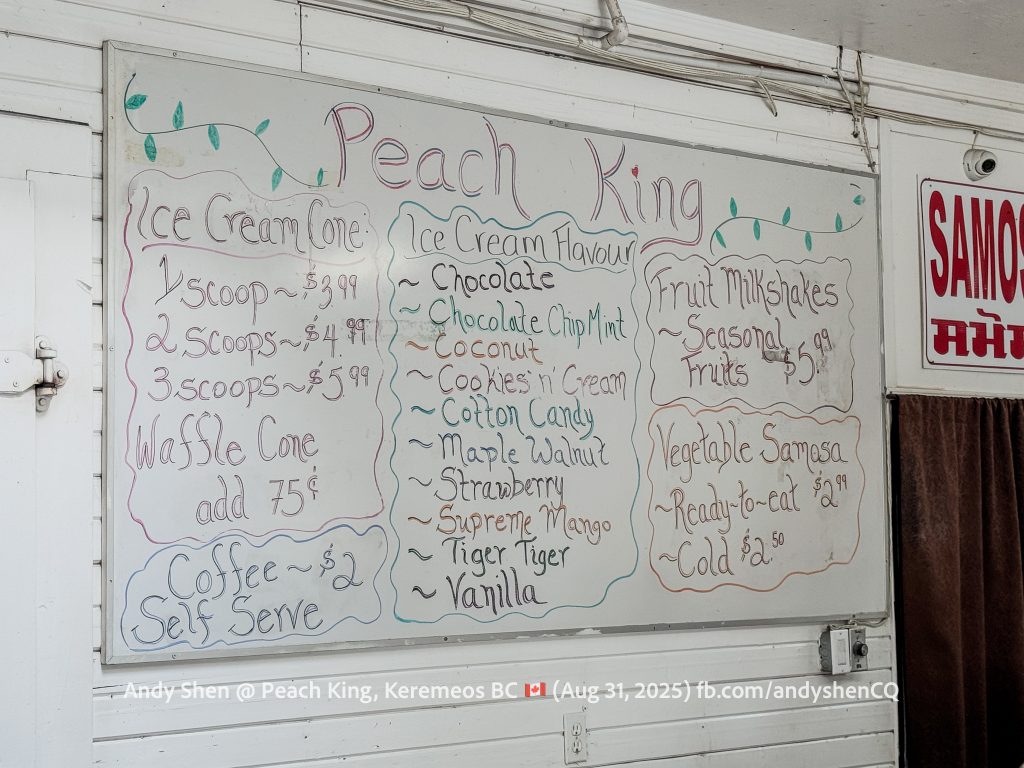 Peach King
Ice Cream Cone
1 scoop ~ $3.99
2 scoops ~ $4.99
3 scoops ~ $5.99
Waffle Cone
add 75¢
Coffee ~ $2
Self Serve
Ice Cream Flavour
~ Chocolate
~ Chocolate Chip Mint
~ Coconut
~ Cookies 'n' Cream
~ Cotton Candy
~ Maple Walnut
~ Strawberry
~ Supreme Mango
~ Tiger Tiger
~ Vanilla
Fruit Milkshakes
~ Seasonal
Fruits $5.99
Vegetable Samosa
~ Ready-to-eat $2.99
~ Cold $2.50
SAMOS
ਸਮੋਸ
Andy Shen @ Peach King, Keremeos BC 🇨🇦 (Aug 31, 2025) fb.com/andyshenCQ